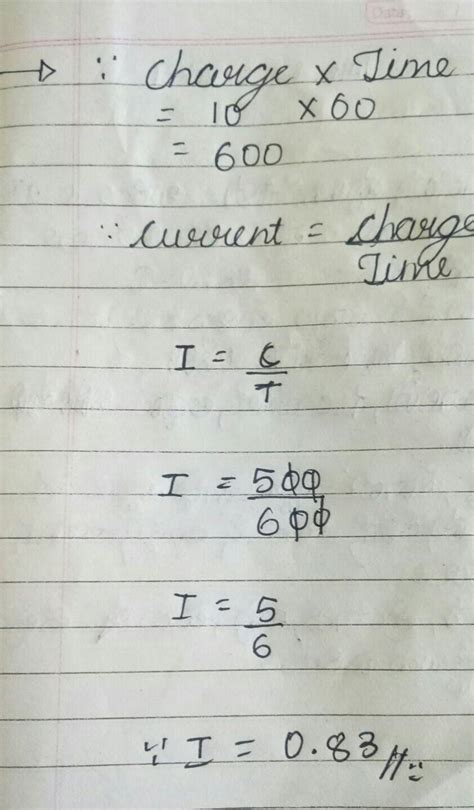 Date
→ ∵ Charge × Time
= 10 × 60
= 600
∵ Current = Charge
Time
I = C
T
I = 500
600
I = 5
6
∵ I = 0.83